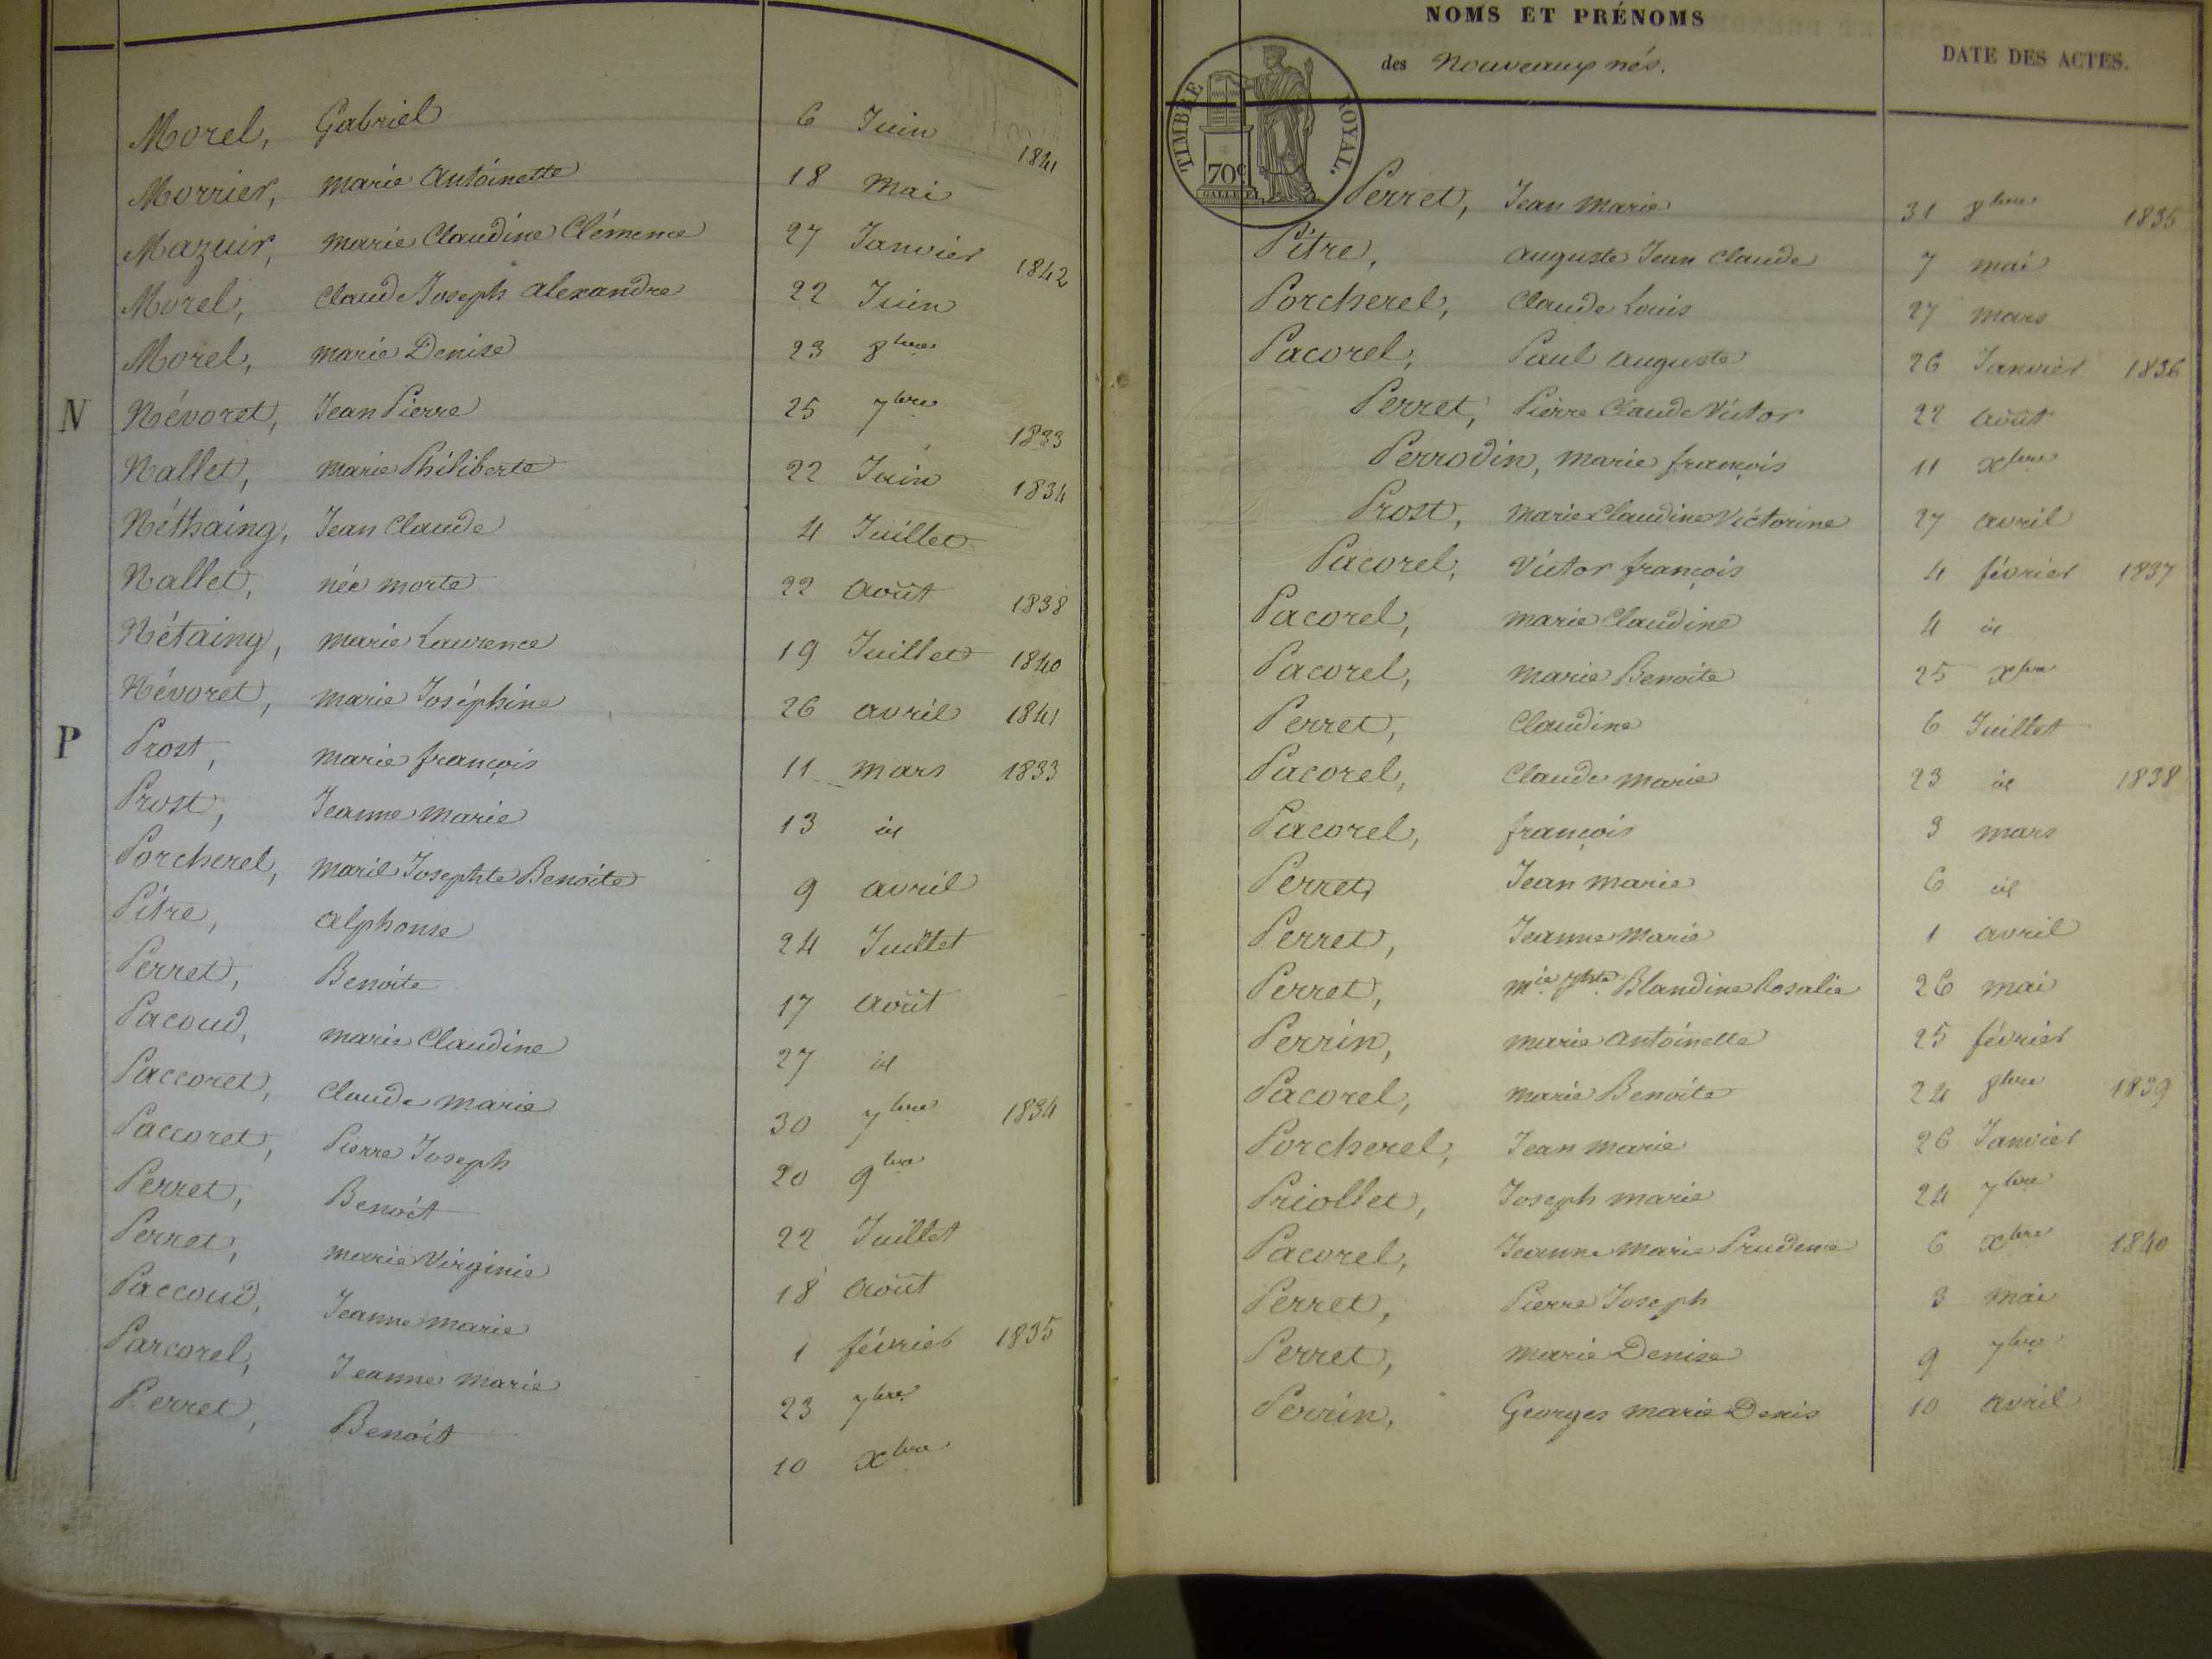 Morel, Gabriel 6 Juin 1841
Morrier, marie Antoinette 18 mai
Mazuir, marie Claudine Clémence 27 Janvier 1842
Morel, Claude Joseph alexandre 22 Juin
Morel, marie Denise 23 8bre
N Névoret, Jean Pierre 25 7bre 1833
Nallet, marie Philiberte 22 Juin 1834
Néthaing, Jean Claude 4 Juillet
Nallet, née morte 22 août 1838
Nétaing, marie Laurence 19 Juillet 1840
Névoret, marie Joséphine 26 avril 1841
P Prost, marie françois 11 mars 1833
Prost, Jeanne marie 13 id
Porcherel, marie Josephte Benoite 9 avril
Pitre, alphonse 24 Juillet
Perret, Benoite 17 août
Pacoud, marie Claudine 27 id
Paccoret, Claude marie 30 7bre 1834
Paccoret, Pierre Joseph 20 9bre
Perret, Benoit 22 Juillet
Perret, marie Virginie 18 août
Paccoud, Jeanne marie 1 février 1835
Parcorel, Jeanne marie 23 7bre
Perret, Benoit 10 xbre
NOMS ET PRÉNOMS
des Nouveaux nés.
DATE DES ACTES.
TIMBRE ROYAL.
70c
Perret, Jean marie 31 8bre 1835
Pitre, auguste Jean Claude 7 mai
Porcherel, Claude Louis 27 mars
Pacorel, Paul auguste 26 Janvier 1836
Perret, Pierre Claude Victor 22 août
Perrodin, marie françois 11 xbre
Prost, marie Claudine Victorine 27 avril
Pacorel, Victor françois 4 février 1837
Pacorel, marie Claudine 4 id
Pacorel, marie Benoite 25 xbre
Perret, Claudine 6 Juillet
Pacorel, Claude marie 23 id 1838
Pacorel, françois 3 mars
Perret, Jean marie 6 id
Perret, Jeanne marie 1 avril
Perret, mie Jphte Blandine Rosalie 26 mai
Perrin, marie antoinette 25 février
Pacorel, marie Benoite 24 8bre 1839
Porcherel, Jean marie 26 Janvier
Priollet, Joseph marie 24 7bre
Pacorel, Jeanne marie Prudence 6 xbre 1840
Perret, Pierre Joseph 3 mai
Perret, marie Denise 9 7bre
Perrin, Georges marie Denis 10 avril